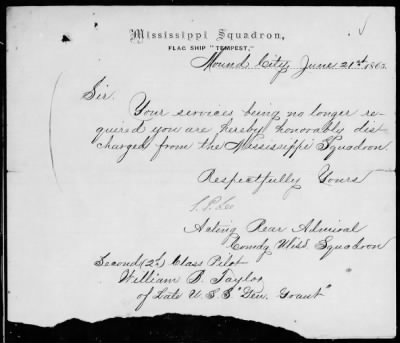 Mississippi Squadron,
FLAG SHIP "TEMPEST,"
Mound City, June 21st 1865.
Sir.
Your services being no longer re-
quired you are hereby honorably dis-
charged from the Mississippi Squadron
Respectfully Yours
S. P. Lee
Acting Rear Admiral
Comdg Miss. Squadron
Second (2d) Class Pilot
William B. Taylor
of Late U.S.S "Gen. Grant"